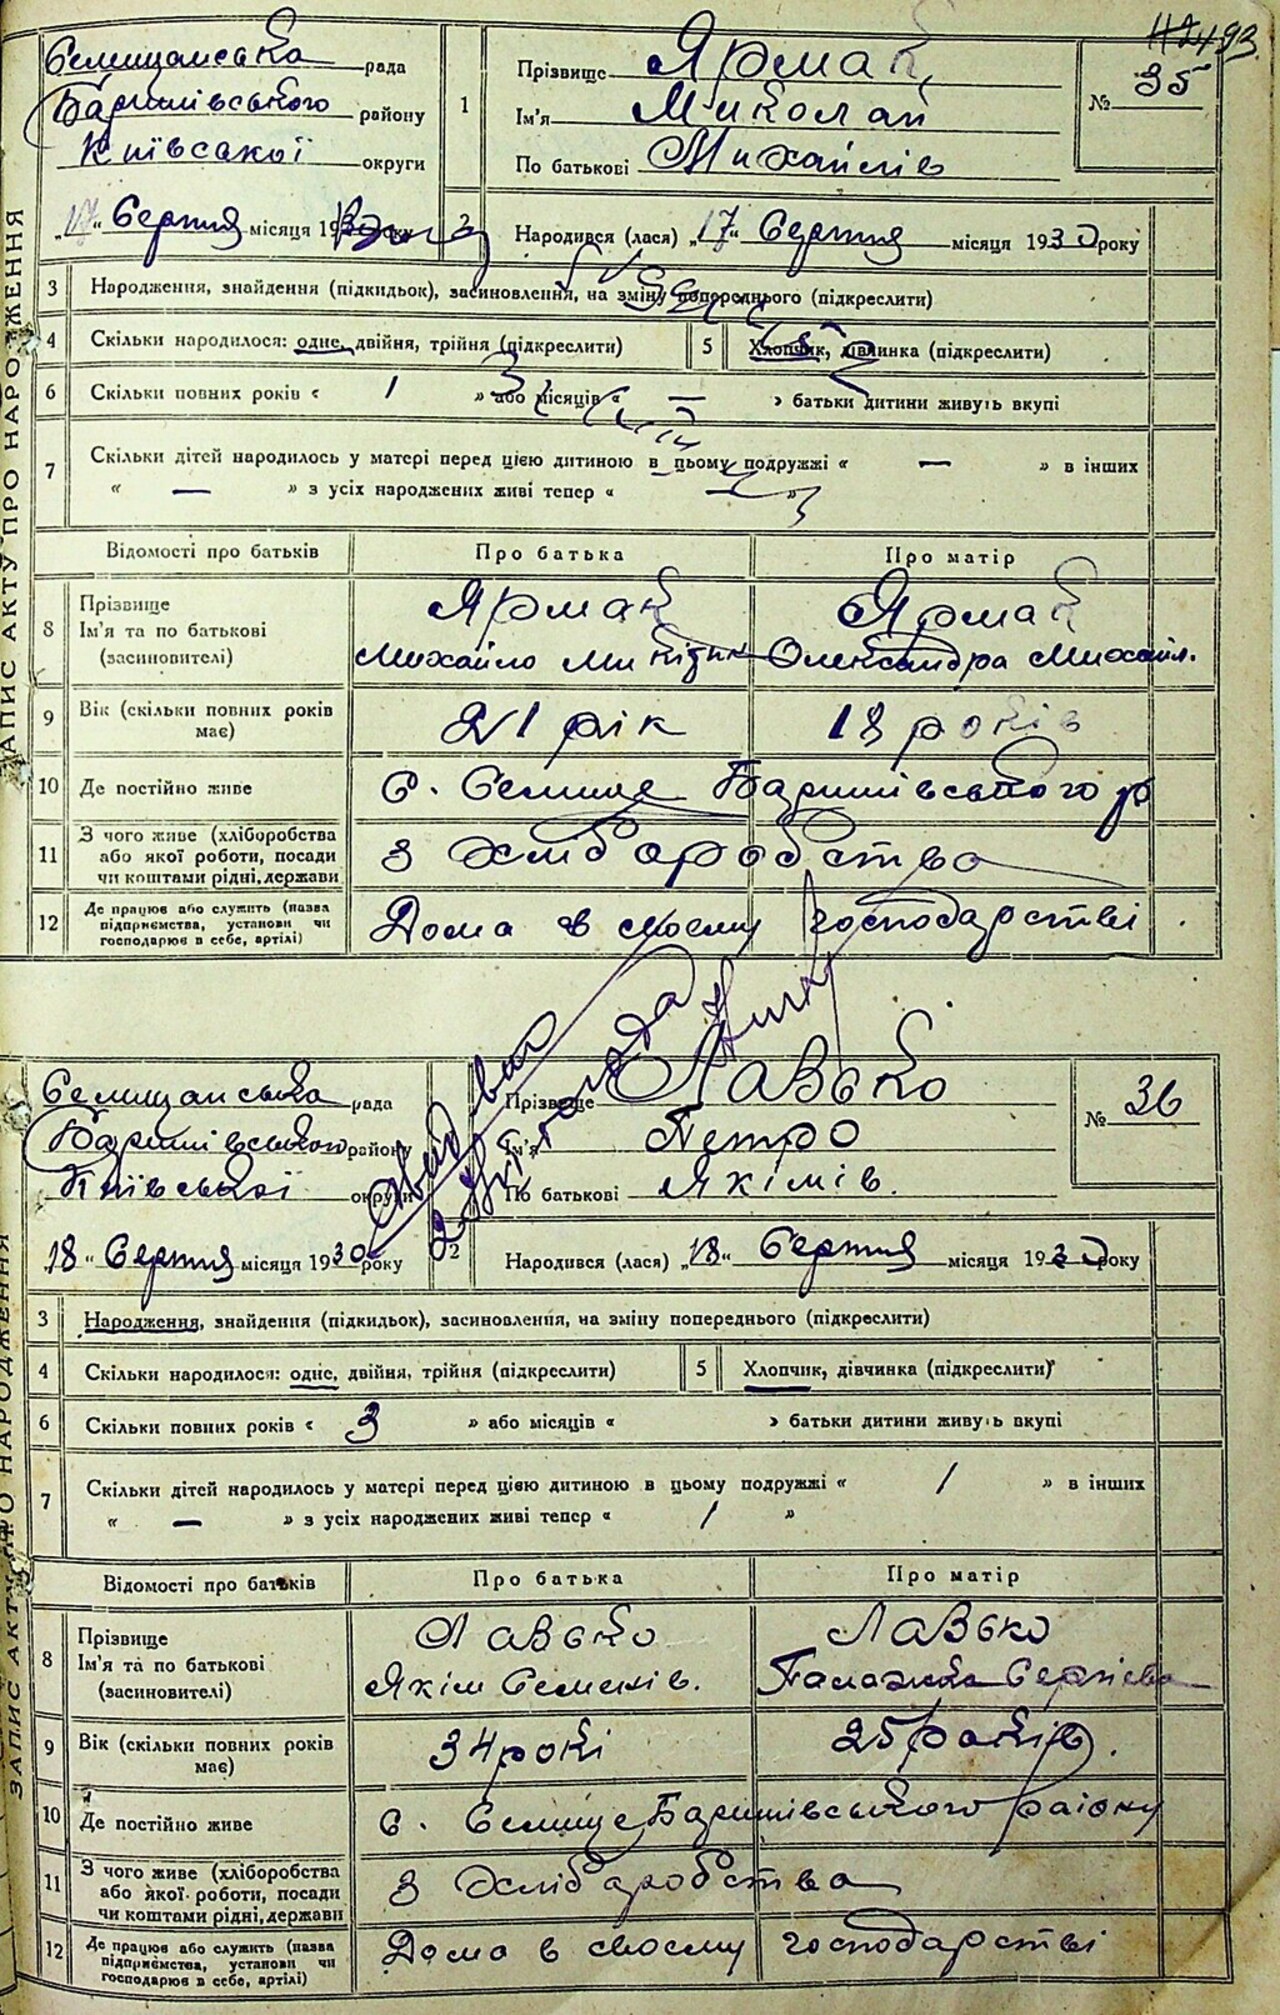 493
Селищанська рада
Баришівського району
Київсакої округи
„17“ Серпня місяця 19 року
1
Прізвище Ярмак
Ім'я Миколай
По батькові Михайлів
№ 35
2
Народився (лася) „17“ Серпня місяця 1930 року
ЗАПИС АКТУ ПРО НАРОДЖЕННЯ
3 Народження, знайдення (підкидьок), засиновлення, на зміну попереднього (підкреслити)
4 Скільки народилося: одне, двійня, трійня (підкреслити) 5 Хлопчик, дівчинка (підкреслити)
6 Скільки повних років « 1 » або місяців « — » батьки дитини живуть вкупі
7 Скільки дітей народилось у матері перед цією дитиною в цьому подружжі « — » в інших
« — » з усіх народжених живі тепер « — »
Відомості про батьків Про батька Про матір
8 Прізвище Ярмак Ярмак
Ім'я та по батькові
(засиновителі) Михайло Олександра Михайл.
9 Вік (скільки повних років має) 21 рік 18 років
10 Де постійно живе с. Селище Баришівського р
11 З чого живе (хліборобства
або якої роботи, посади
чи коштами рідні, держави з хліборобства
12 Де працює або служить (назва
підприємства, установи чи
господарює в себе, артілі) Дома в своєму господарстві.
Селищанська рада
Баришівського району
Київської округи
„18“ Серпня місяця 1930 року
Прізвище Лавько
Ім'я Петро
По батькові Якімів.
№ 36
2
Народився (лася) „18“ Серпня місяця 1930 року
ЗАПИС АКТУ ПРО НАРОДЖЕННЯ
3 Народження, знайдення (підкидьок), засиновлення, на зміну попереднього (підкреслити)
4 Скільки народилося: одне, двійня, трійня (підкреслити) 5 Хлопчик, дівчинка (підкреслити)
6 Скільки повних років « 3 » або місяців « » батьки дитини живуть вкупі
7 Скільки дітей народилось у матері перед цією дитиною в цьому подружжі « 1 » в інших
« — » з усіх народжених живі тепер « 1 »
Відомості про батьків Про батька Про матір
8 Прізвище Лавько Лавько
Ім'я та по батькові
(засиновителі) Якім Семенів. Палажка Сергієва
9 Вік (скільки повних років має) 34 рокі 25 років.
10 Де постійно живе с. Селище Баришівського району
11 З чого живе (хліборобства
або якої роботи, посади
чи коштами рідні, держави з хліборобства
12 Де працює або служить (назва
підприємства, установи чи
господарює в себе, артілі) Дома в своєму господарстві